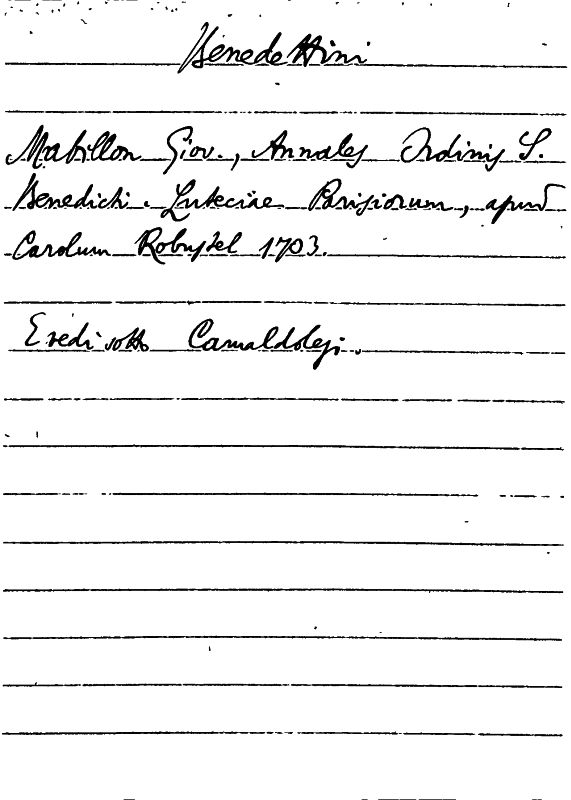 Benedettini
Mabillon Giov., Annales Ordinis S.
Benedicti. Luteciae Parisiorum, apud
Carolum Robustel 1703.
Vedi sotto Camaldolesi.